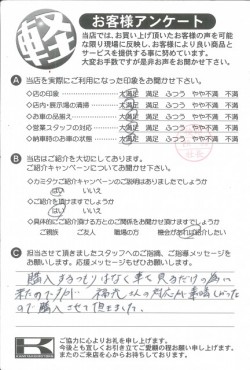 軽
お客様アンケート
当店では、お買い上げ頂いたお客様の声を可能
な限り現場に反映し、お客様により良い商品と
サービスを提供する事に努めています。
大変お手数ですが是非お声をお聞かせ下さい。
A 当店を実際にご利用になった印象をお聞かせ下さい。
◇店の印象 大満足 満足 ふつう やや不満 不満
◇店内・展示場の清掃 大満足 満足 ふつう やや不満 不満
◇お車の品揃え 大満足 満足 ふつう やや不満 不満
◇営業スタッフの対応 大満足 満足 ふつう やや不満 不満
◇納車時のお車の状態 大満足 満足 ふつう やや不満 不満
B 当店はご紹介を大切にしております。
ご紹介キャンペーンについてお聞かせ下さい。
◇カミタケご紹介キャンペーンのご説明はありましたでしょうか
はい いいえ
◇ご紹介を頂けますでしょうか
はい いいえ
◇具体的にご紹介頂ける方とのご関係をお聞かせ頂けますでしょうか
ご親族 ご友人 職場の方 機会があれば紹介したい
C 担当させて頂きましたスタッフへのご指摘、ご指導メッセージを
お願いします。応援メッセージもぜひお願いします。
購入するつもりはなく車を見るだけの為に
来たのですが
さんの対応が素晴しかった
ので購入させて頂きました。
K
ご協力に心よりお礼を申し上げます。
今後とも宜しくお引き立てご愛顧の程お願い申し上げます。
またのご来店を心からお待ちしております。